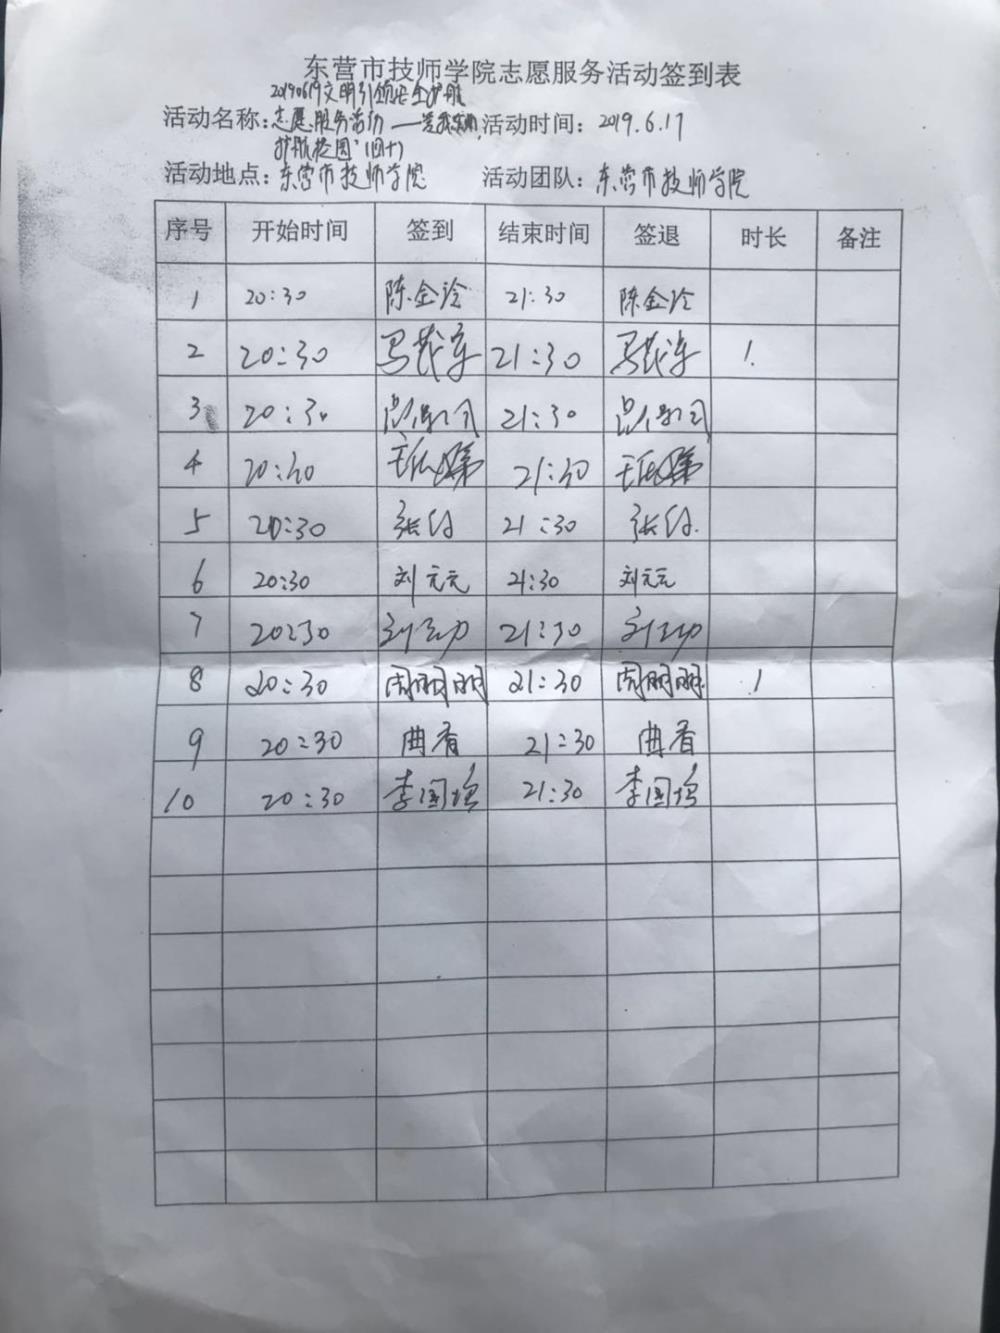 东营市技师学院志愿服务活动签到表
20190617文明引领安全护航
活动名称：志愿服务活动—— 活动时间：2019.6.17
护航校园"(四十)
活动地点：东营市技师学院 活动团队：东营市技师学院
序号 开始时间 签到 结束时间 签退 时长 备注
1 20:30 陈金泠 21:30 陈金泠
2 20:30 马茂军 21:30 马茂军 1
3 20:30 21:30
4 20:30 21:30
5 20:30 21:30
6 20:30 刘元元 21:30 刘元元
7 20:30 21:30
8 20:30 周明明 21:30 周明明 1
9 20:30 曲香 21:30 曲香
10 20:30 李国培 21:30 李国培